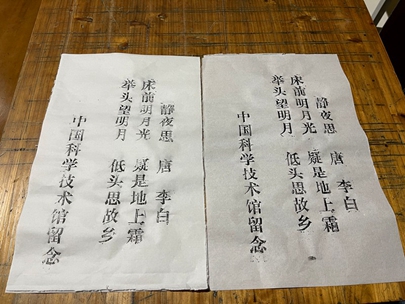 静夜思 唐 李白
床前明月光 疑是地上霜
举头望明月 低头思故乡
中国科学技术馆留念
静夜思 唐 李白
床前明月光 疑是地上霜
举头望明月 低头思故乡
中国科学技术馆留念